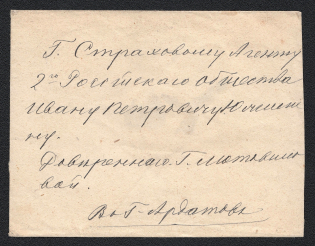 Г. Страховому Агенту
2го Россійскаго общества
Ивану Петровичу
ну.
Довѣреннаго Г.
вой.
Въ Г. Ардатовъ